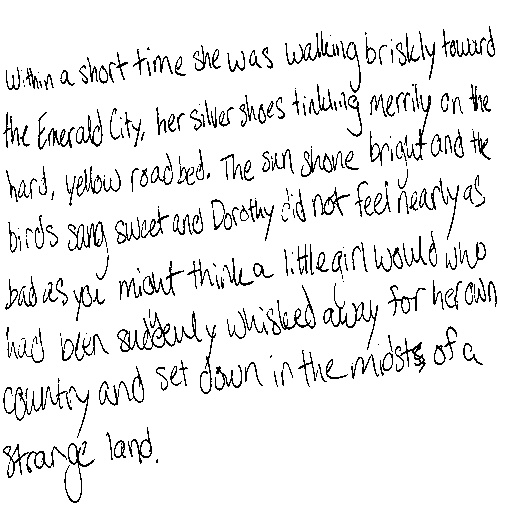 Within a short time she was walking briskly toward
the Emerald City, her silver shoes tinkling merrily on the
hard, yellow roadbed. The sun shone bright and the
birds sang sweet and Dorothy did not feel nearly as
bad as you might think a little girl would who
had been suddenly whisked away for her own
country and set down in the midsts of a
strange land.